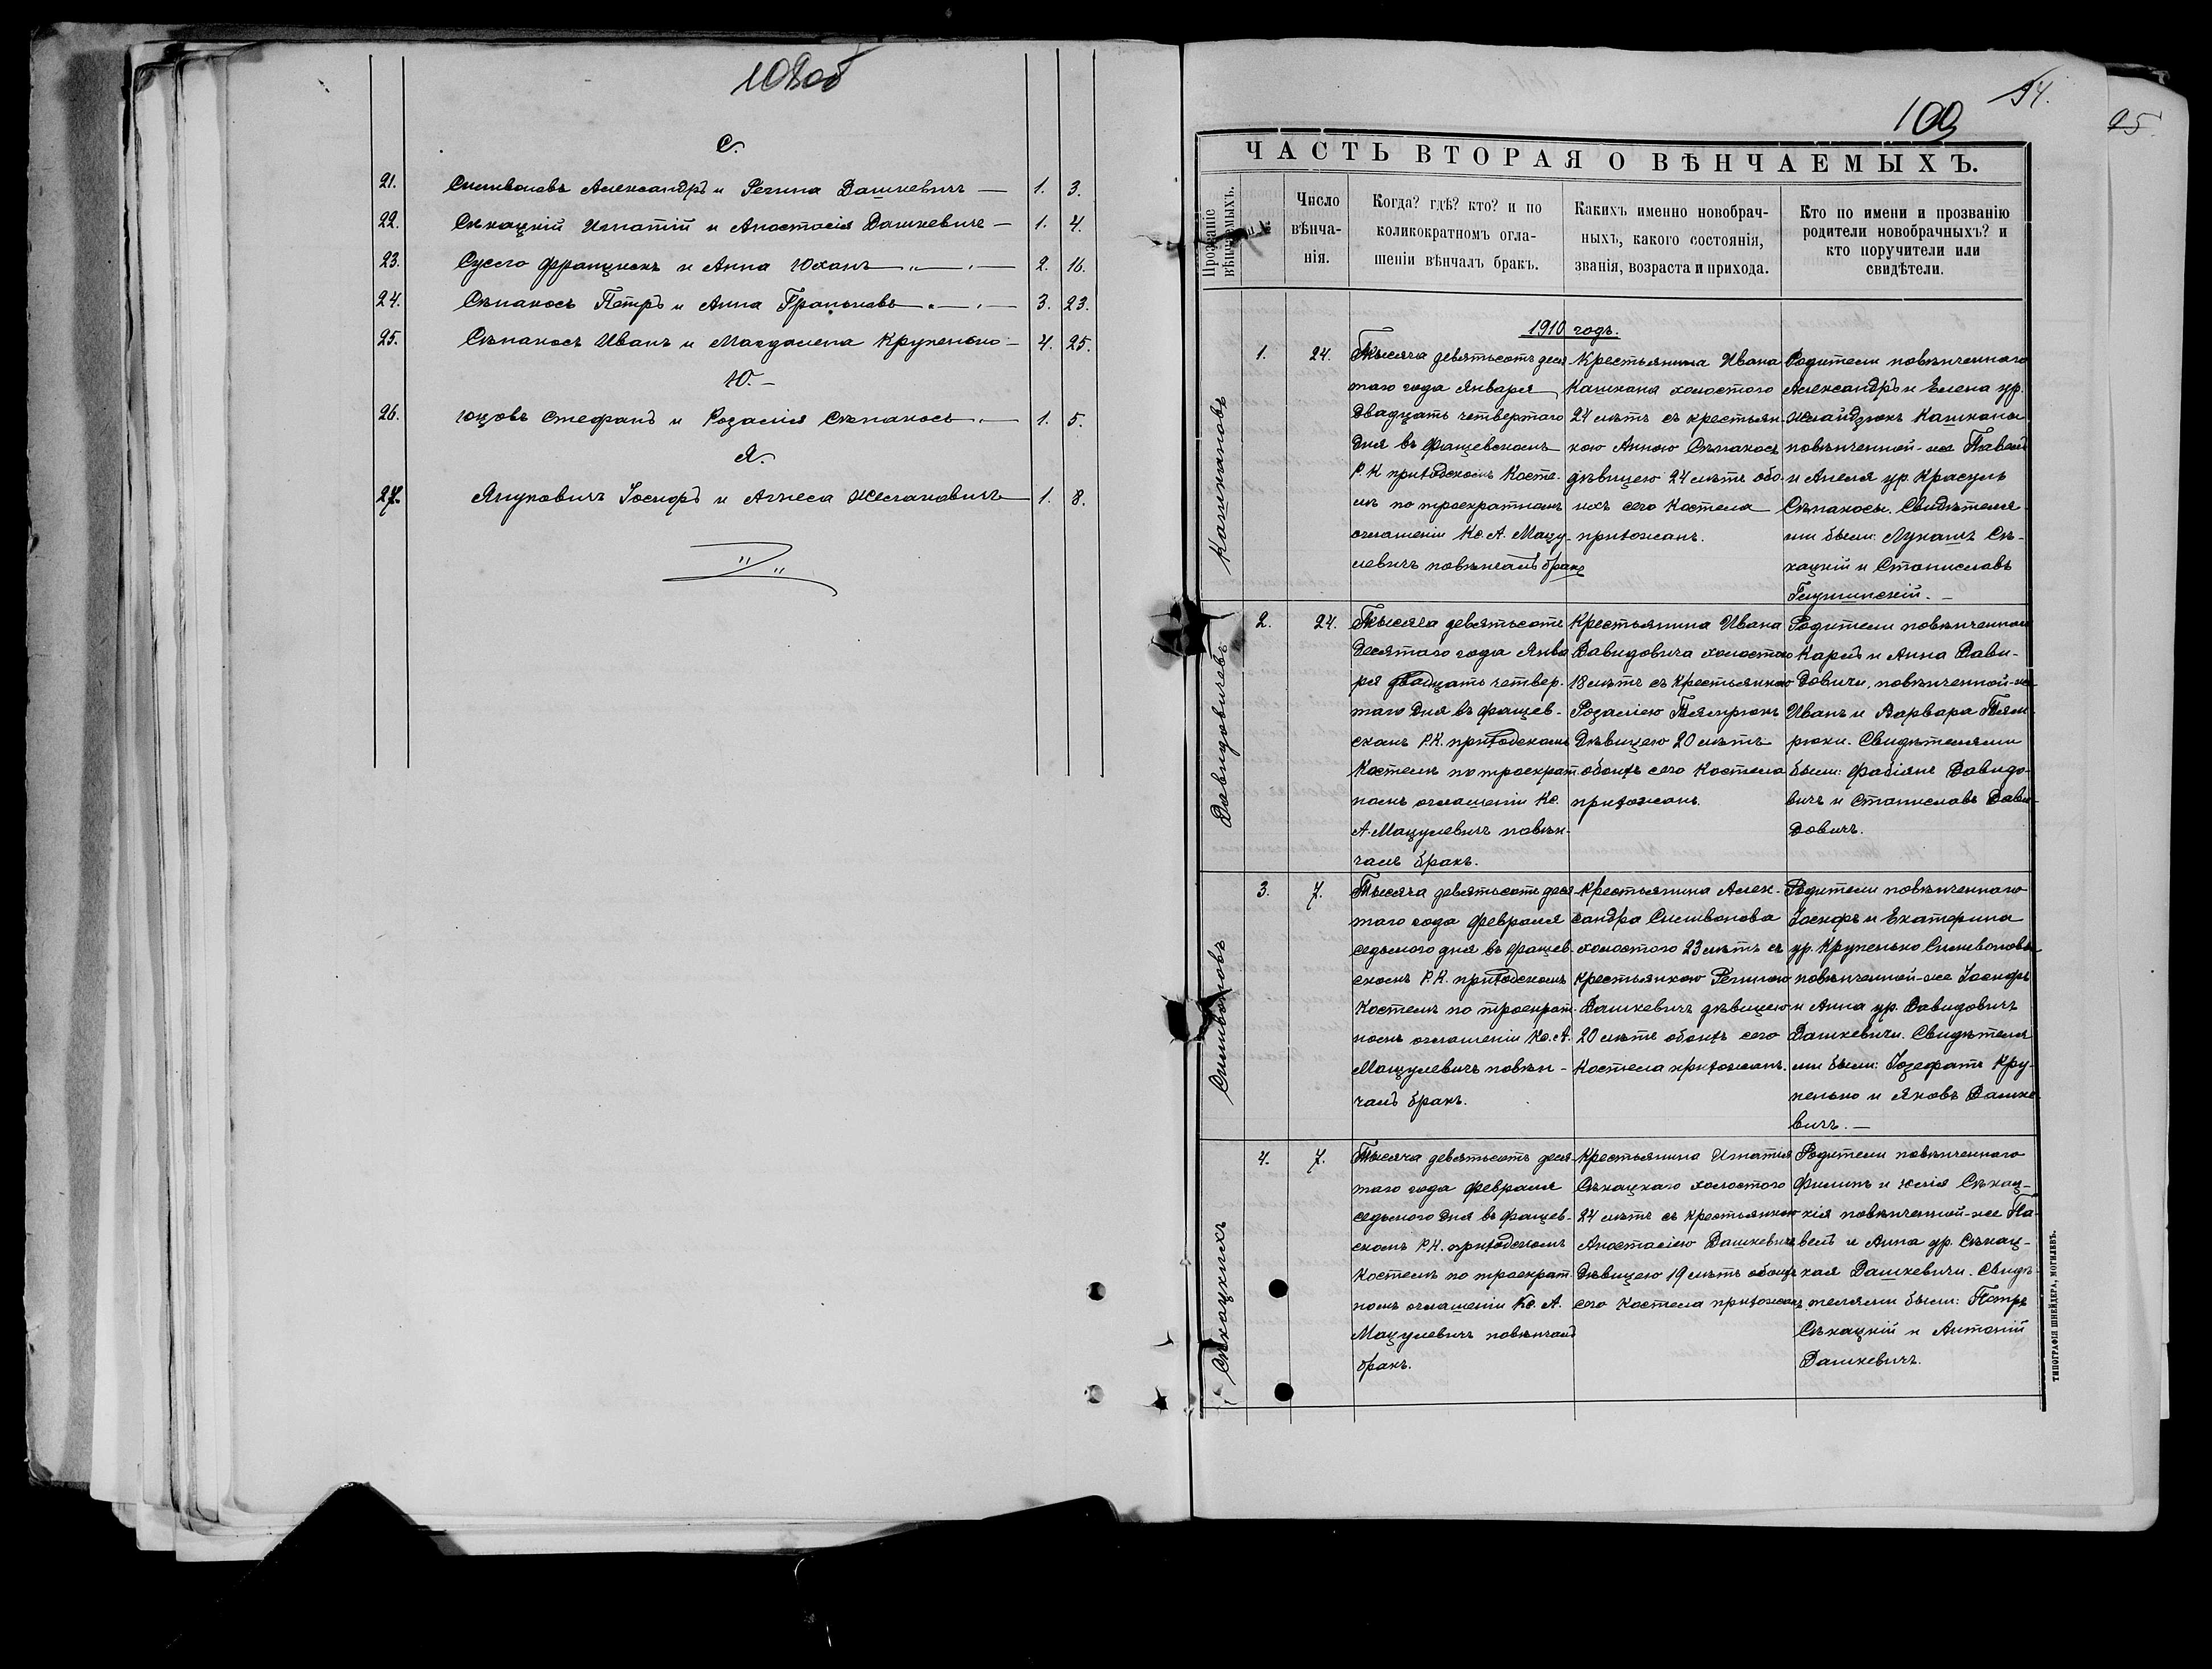 108об
С.
21. Силивоновъ Александръ и Регина Дашкевичъ — 1. 3.
22. Сѣкацкій Игнатій и Анастасія Дашкевичъ — 1. 4.
23. Сусло Францискъ и Анна Юханъ — 2. 16.
24. Сѣпакосъ Петръ и Анна — 3. 23.
25. Сѣпакосъ Иванъ и Магдалена Крупенько — 4. 25.
Ю. –
26. Юцовъ Стефанъ и Розалія Сѣпакосъ — 1. 5.
Я.
27. Януковичъ Іосифъ и Агнеса — 1. 8.
94.
109
95.
ЧАСТЬ ВТОРАЯ О ВѢНЧАЕМЫХЪ.
Прозваніе вѣнчаемыхъ.
Число вѣнча-
нія.
Когда? гдѣ? кто? и по
коликократномъ огла-
шеніи вѣнчалъ бракъ.
Какихъ именно новобрач-
ныхъ, какого состоянія,
званія, возраста и прихода.
Кто по имени и прозванію
родители новобрачныхъ? и
кто поручители или
свидѣтели.
1910 годъ.
Кашкановъ
1. 24.
Тысяча девятьсотъ деся-
таго года Января
двадцать четвертаго
дня въ Фащевскомъ
Р. К приходскомъ Косте-
лѣ по троекратномъ
оглашеніи Кс. А. Мацу-
левичъ повѣнчалъ бракъ
Крестьянина Ивана
Кашкана холостого
24 лѣтъ съ крестьян-
кою Анною Сѣпакосъ
дѣвицею 24 лѣтъ обо-
ихъ сего Костела
прихожанъ.
Родители повѣнченнаго
Александръ и Елена ур.
Кашканы
повѣнченной-же Павелъ
и Анеля ур. Красуль
Сѣпакосы. Свидѣтеля-
ми были: Лукашъ Сѣ-
кацкій и Станиславъ
Давидовичевъ
2. 24.
Тысяча девятьсотъ
десятаго года Янва
ря двадцать четвер-
таго дня въ Фащев-
скомъ Р.К. приходскомъ
Костелѣ по троекрат-
номъ оглашеніи Кс.
А. Мацулевичъ повѣн-
чалъ бракъ.
Крестьянина Ивана
Давидовича холостого
18 лѣтъ съ крестьянкою
Розаліею Тямрюкъ
дѣвицею 20 лѣтъ
обоихъ сего Костела
прихожанъ.
Родители повѣнченнаго
Карлъ и Анна Дави-
довичи, повѣнченной-же
Иванъ и Варвара Тям-
рюки. Свидѣтелями
были: Фабіянъ Давидо-
вичъ и Станиславъ Дави-
довичъ.
Силивоновъ
3. 7.
Тысяча девятьсотъ деся-
таго года Февраля
седьмого дня въ Фащев
скомъ Р.К. приходскомъ
Костелѣ по троекрат-
номъ оглашеніи Кс. А.
Мацулевичъ повѣн-
чалъ бракъ.
Крестьянина Алек-
сандра Силивонова
холостого 23 лѣтъ съ
крестьянкою Региною
Дашкевичъ дѣвицею
20 лѣтъ обоихъ сего
Костела прихожанъ.
Родители повѣнченнаго
Іосифъ и Екатерина
ур. Крупенько Силивоновы
повѣнченной-же Іосифъ
и Анна ур. Давидовичъ
Дашкевичи. Свидѣтеля
ми были: Іозефатъ Кру-
пенько и Яковъ Дашке
вичъ. —
Сѣкацкихъ
4. 7.
Тысяча девятьсотъ деся-
таго года Февраля
седьмого дня въ Фащев-
скомъ Р.К. приходскомъ
Костелѣ по троекрат-
номъ оглашеніи Кс. А.
Мацулевичъ повѣнчалъ
бракъ.
Крестьянина Игнатія
Сѣкацкаго холостого
24 лѣтъ съ крестьянкою
Анастасіею Дашкевичъ
дѣвицею 19 лѣтъ обоихъ
сего Костела прихожанъ
Родители повѣнченнаго
Филипъ и Юлія Сѣкац-
кія повѣнченной-же Па-
велъ и Анна ур. Сѣкац-
кая Дашкевичи. Свидѣ-
телями были: Петръ
Сѣкацкій и Антоній
Дашкевичъ.
ТИПОГРАФІЯ ШНЕЙДЕРА, МОГИЛЕВЪ.